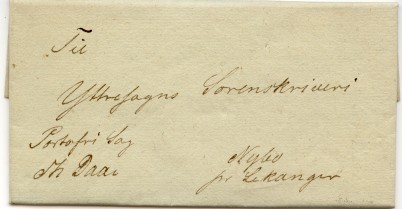 Til
Yttresogns Sorenskriveri
Portofri Sag
Th Daae
Nybø
pr Lekanger